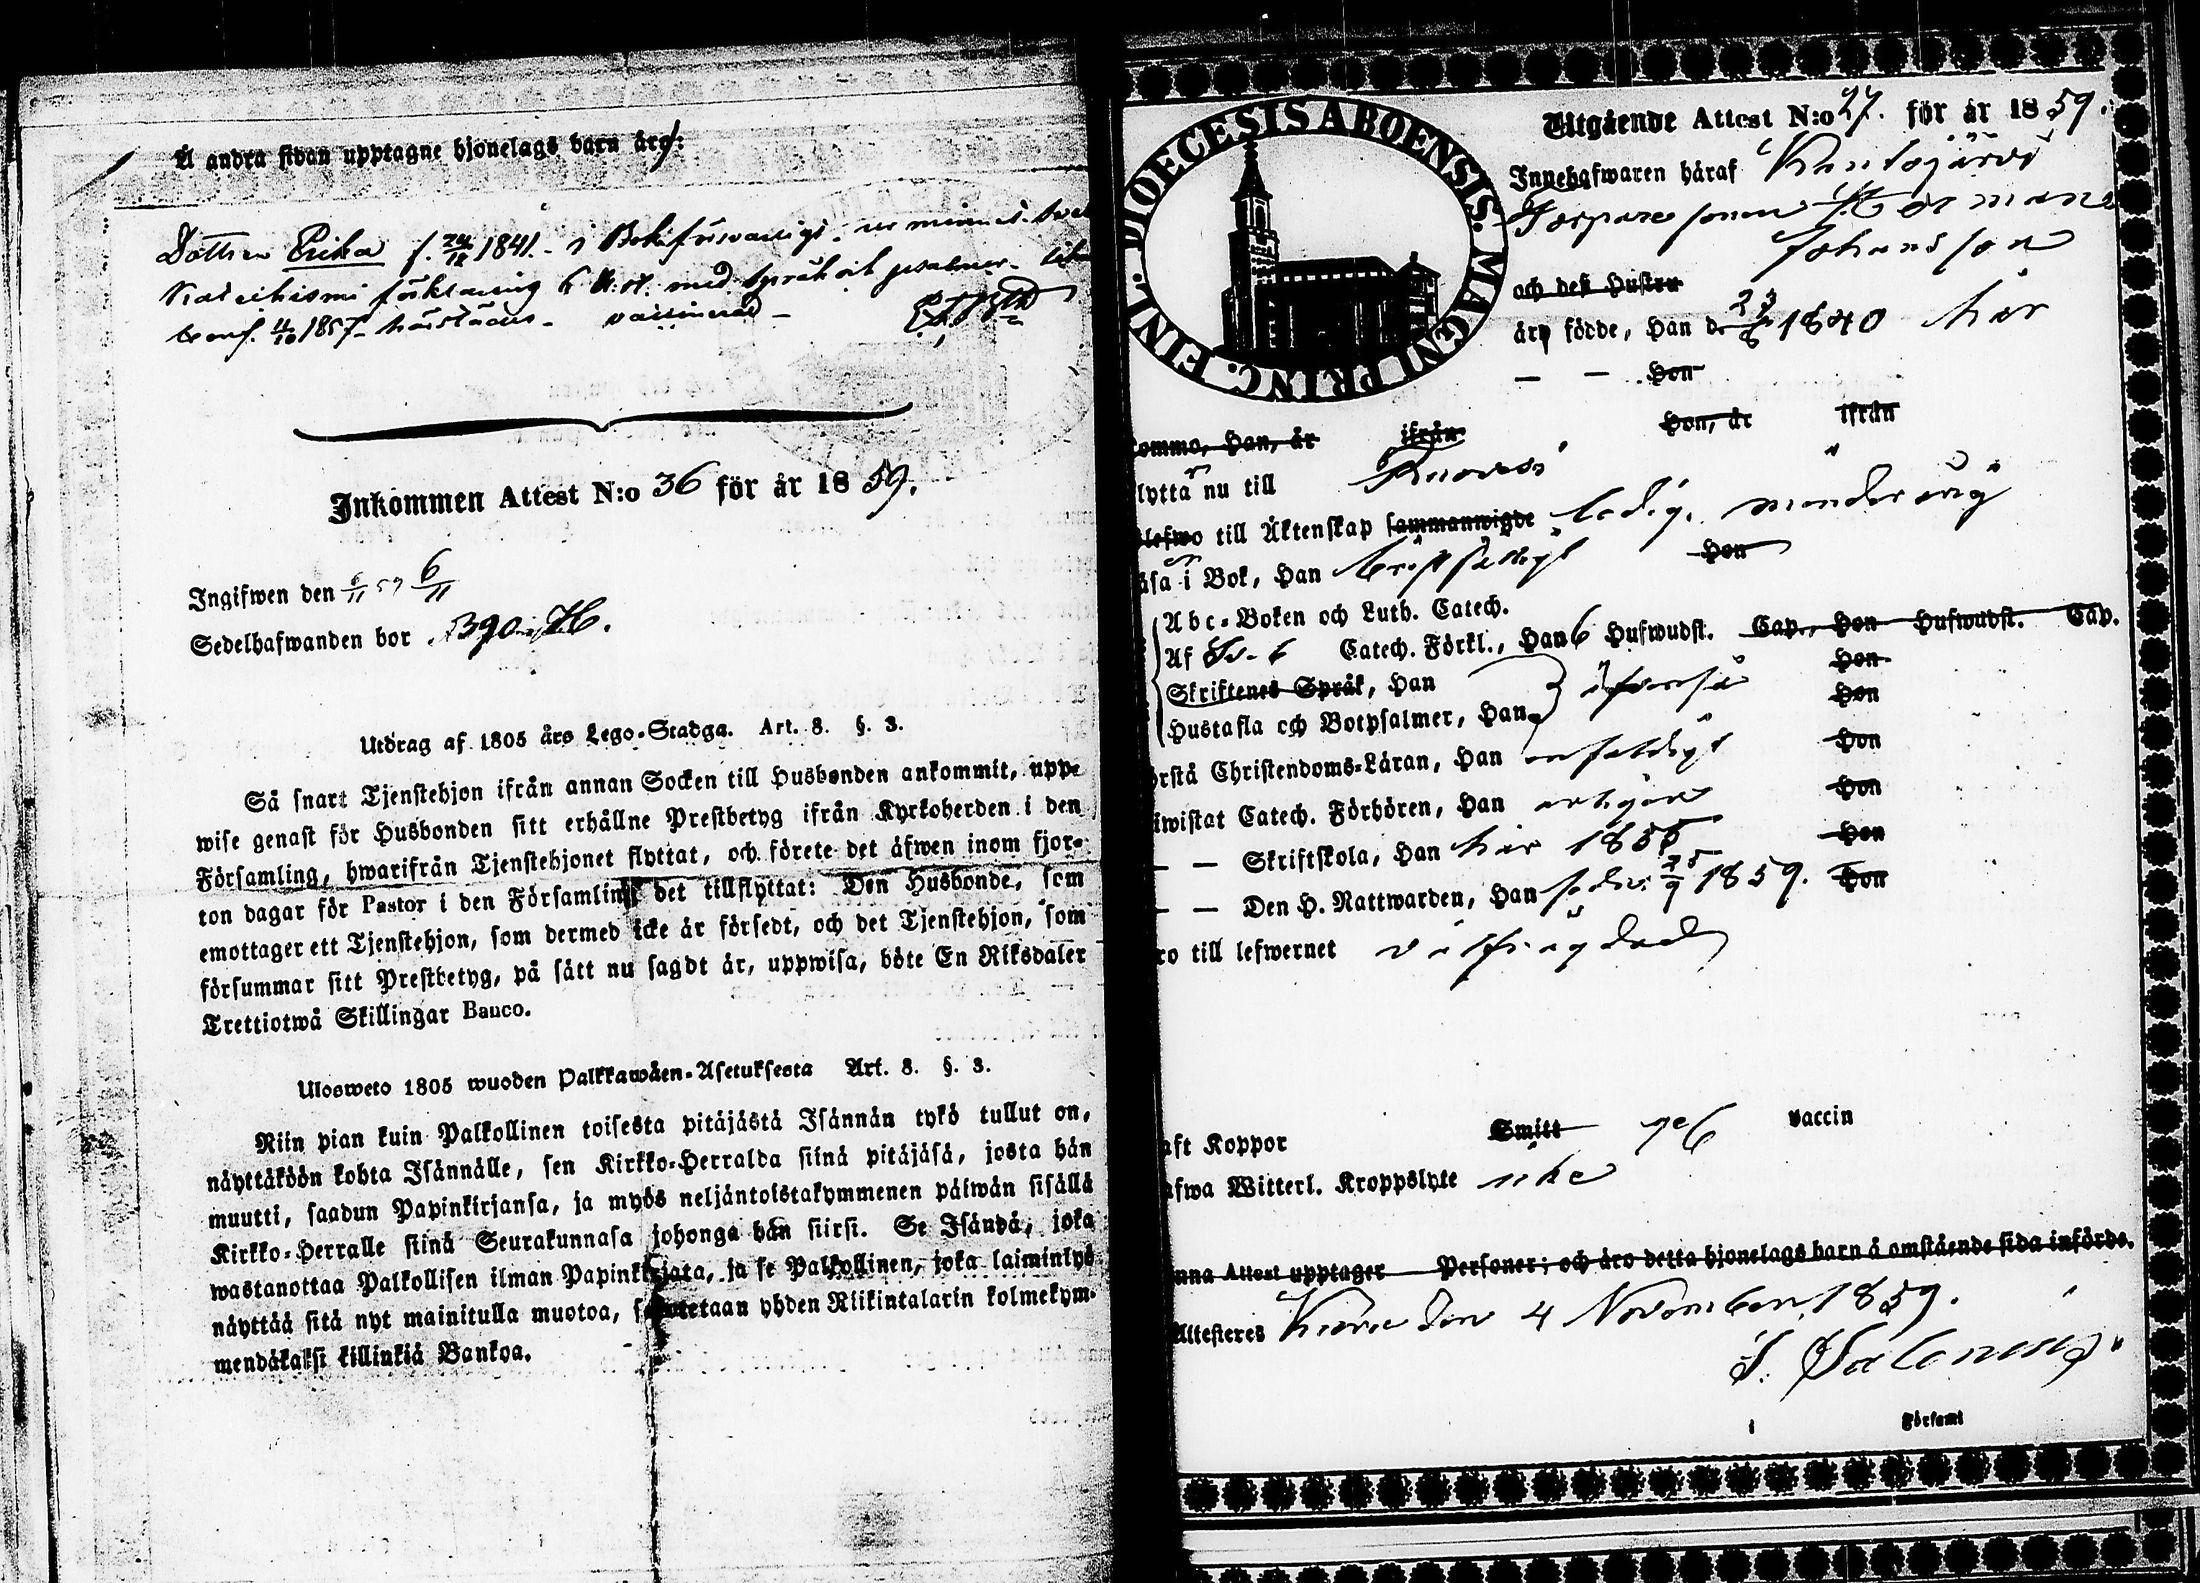 Å andra sidan upptagne hjonelags barn är:
Dottren Erika f. 24/12 1841. i Bok
Katechismi förklaring 6 med språk och psalmer
conf. 1857 vaccinerad
Inkommen Attest N:o 36 för år 1859.
Ingifwen den 6/11 59 6/11
Sedelhafwanden bor
Utdrag af 1805 års Lego-Stadga. Art. 8. §. 3.
Så snart Tjenstehjon ifrån annan Socken till Husbonden ankommit, upp-
wise genast för Husbonden sitt erhållne Prestbetyg ifrån Kyrkoherden i den
Församling, hwarifrån Tjenstehjonet flyttat, och förete det äfwen inom fjor-
ton dagar för Pastor i den Församling det tillflyttat: Den Husbonde, som
emottager ett Tjenstehjon, som dermed icke är försedt, och det Tjenstehjon, som
försummar sitt Prestbetyg, på sätt nu sagdt är, uppwisa, böte En Riksdaler
Trettiotwå Skillingar Banco.
Ulosweto 1805 wuoden Palkkawäen-Asetuksesta Art. 8. §. 3.
Niin pian kuin Palkollinen toisesta pitäjästä Isännän tykö tullut on,
näyttäköön kohta Isännälle, sen Kirkko-Herralda siinä pitäjäsä, josta hän
muutti, saadun Papinkirjansa, ja myös neljäntoistakymmenen päiwän sisällä
Kirkko-Herralle siinä Seurakunnasa johonga hän siirsi. Se Isändä, joka
wastanottaa Palkollisen ilman Papinkirjata, ja se Palkollinen, joka laiminlyö
näyttää sitä nyt mainitulla muotoa, sakotetaan yhden Riikintalarin kolmekym-
mendäkaksi killinkiä Bankoa.
DIOECESIS ABOENSIS. MAGNI PRINC. FINL.
Utgående Attest N:o 27. för år 1859.
Innehafwaren häraf
Torpare sonen Herman
Johansson
och dess Hustru
äro födde, Han d. 23/6 1840 här
— — Hon
komma, Han, år ifrån Hon, år ifrån
flytta nu till
lefwo till Äktenskap sammanwigde ledig, minderårig
läsa i Bok, Han Hon
Abc-Boken och Luth. Catech.
Af Sv. 6 Catech. Förkl., Han 6 Hufwudst. Cap., Hon Hufwudst. Cap.
Skriftenes Språk, Han Hon
Hustafla och Botpsalmer, Han Hon
förstå Christendoms-Läran, Han enfaldigt Hon
biwistat Catech. Förhören, Han Hon
— — Skriftskola, Han här 1855 Hon
— — Den H. Nattwarden, Han sedn. 25/9 1859. Hon
äro till lefwernet välfrägdad
haft Koppor Smitt vaccin
hafwa Witterl. Kroppslyte icke
denna Attest upptager Personer; och äro detta hjonelags barn å omstående sida införde.
Attesteres den 4 November 1859.
i Församl